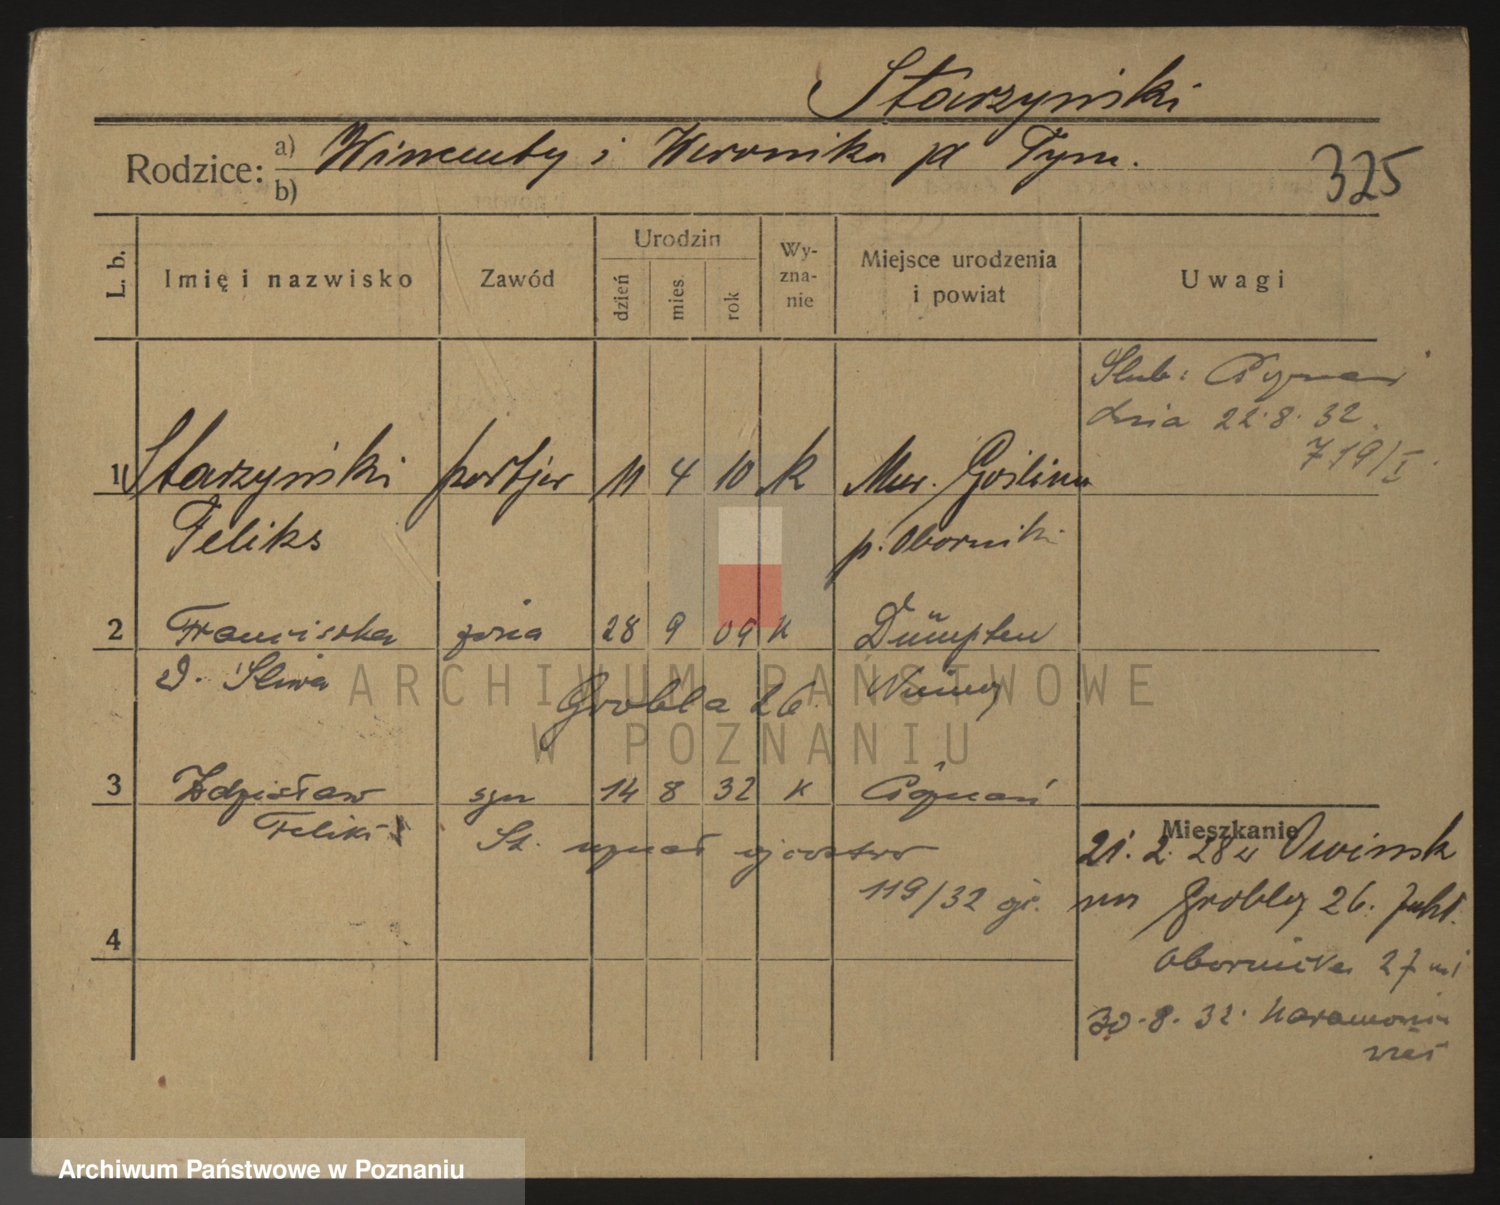 Starzyński
Rodzice: a) Wincenty i Weronika Tym.
b)
325
L. b.
Imię i nazwisko
Zawód
Urodzin
dzień
mies.
rok
Wy-
zna-
nie
Miejsce urodzenia
i powiat
Uwagi
Ślub: Poznań
dnia 22.8.32.
719/I.
1 Starzyński portjer 11 4 10 k Mur. Goślina
Feliks p. Oborniki
2 Franciszka żona 28 9 09 k Dümpten
Śliwa Niemcy
Grobla 26.
3 Zdzisław syn 14 8 32 k Poznań
Feliks
St. uznał ojcostwo
119/32
4
Mieszkanie
21. 2. 28
Grobley 26.
Obornicka 27
30.8.32.
ARCHIWUM PAŃSTWOWE
W POZNANIU
Archiwum Państwowe w Poznaniu